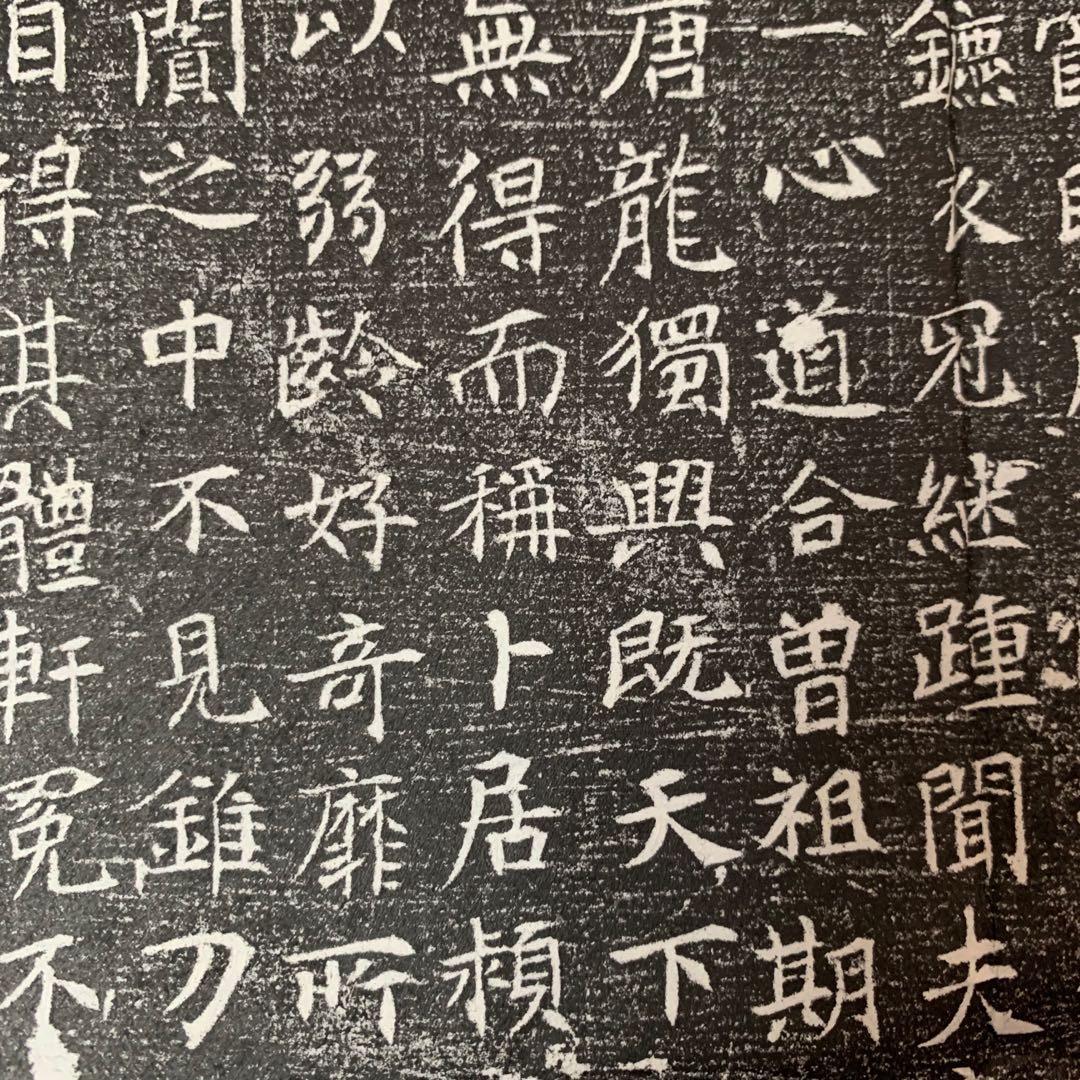 鑣衣冠継踵聞夫
一心道合曾祖期
唐龍獨興既天下
無得而稱卜居潁
以弱齡好奇靡所
闠之中不見錐刀
自得其體軒冕不